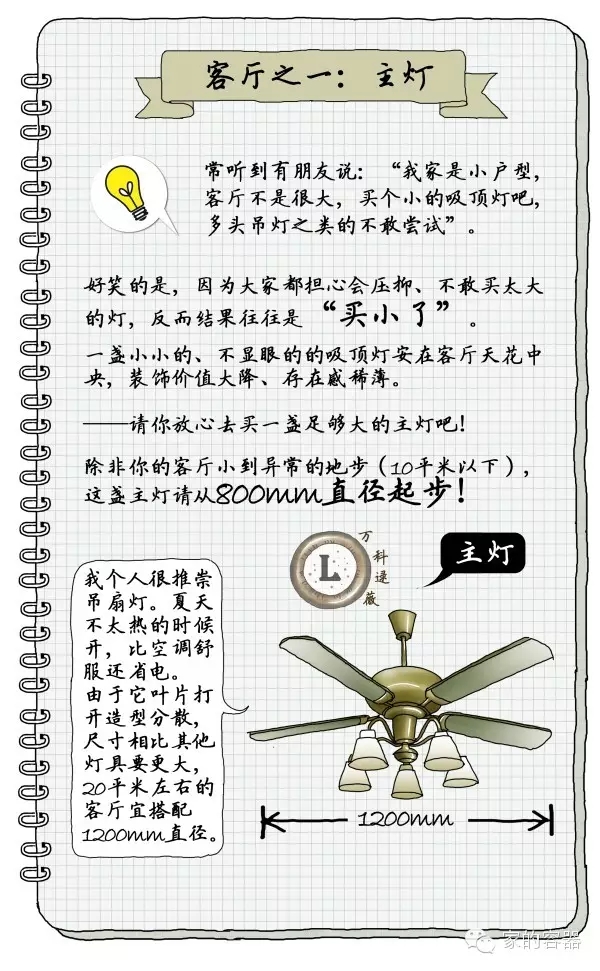 客厅之一：主灯
常听到有朋友说：“我家是小户型，
客厅不是很大，买个小的吸顶灯吧，
多头吊灯之类的不敢尝试”。
好笑的是，因为大家都担心会压抑、不敢买太大
的灯，反而结果往往是“买小了”。
一盏小小的、不显眼的的吸顶灯安在客厅天花中
央，装饰价值大降、存在感稀薄。
——请你放心去买一盏足够大的主灯吧！
除非你的客厅小到异常的地步（10平米以下），
这盏主灯请从800mm直径起步！
L
万科逯薇
主灯
我个人很推崇
吊扇灯。夏天
不太热的时候
开，比空调舒
服还省电。
由于它叶片打
开造型分散，
尺寸相比其他
灯具要更大，
20平米左右的
客厅宜搭配
1200mm直径。
1200mm
家的容器